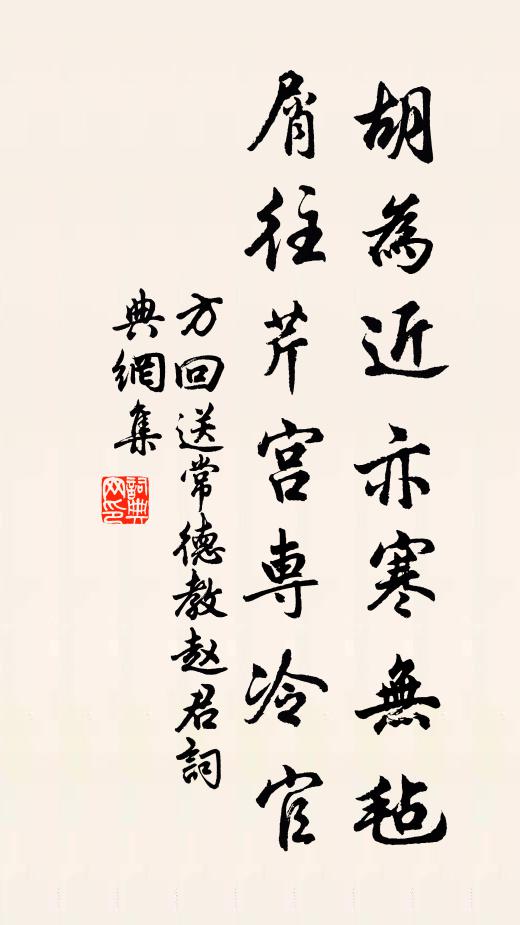 胡為近亦寒無毡
屑往芹宮専冷官
方回送常德教赵君詞
典網集
詞典
网印